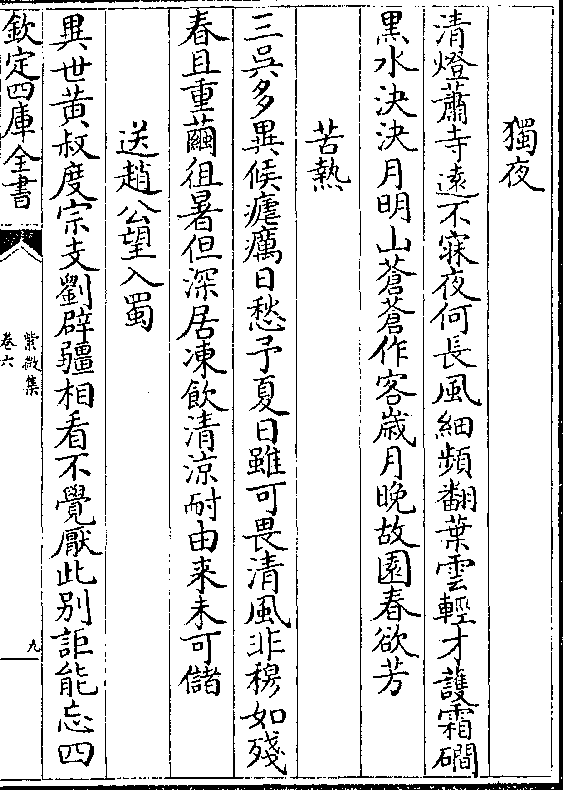 獨夜
清燈蕭寺遠不寐夜何長風細頻翻葉雲輕才護霜磵
黒水決決月明山蒼蒼作客歳月晩故園春欲芳
苦熱
三吳多異候瘧癘日愁予夏日雖可畏清風非穆如殘
春且重繭徂暑但深居凍飲清涼耐由来未可儲
送趙公望入蜀
異世黃叔度宗支劉辟疆相看不覺厭此别詎能忘四
欽定四庫全書
紫微集
卷六
九